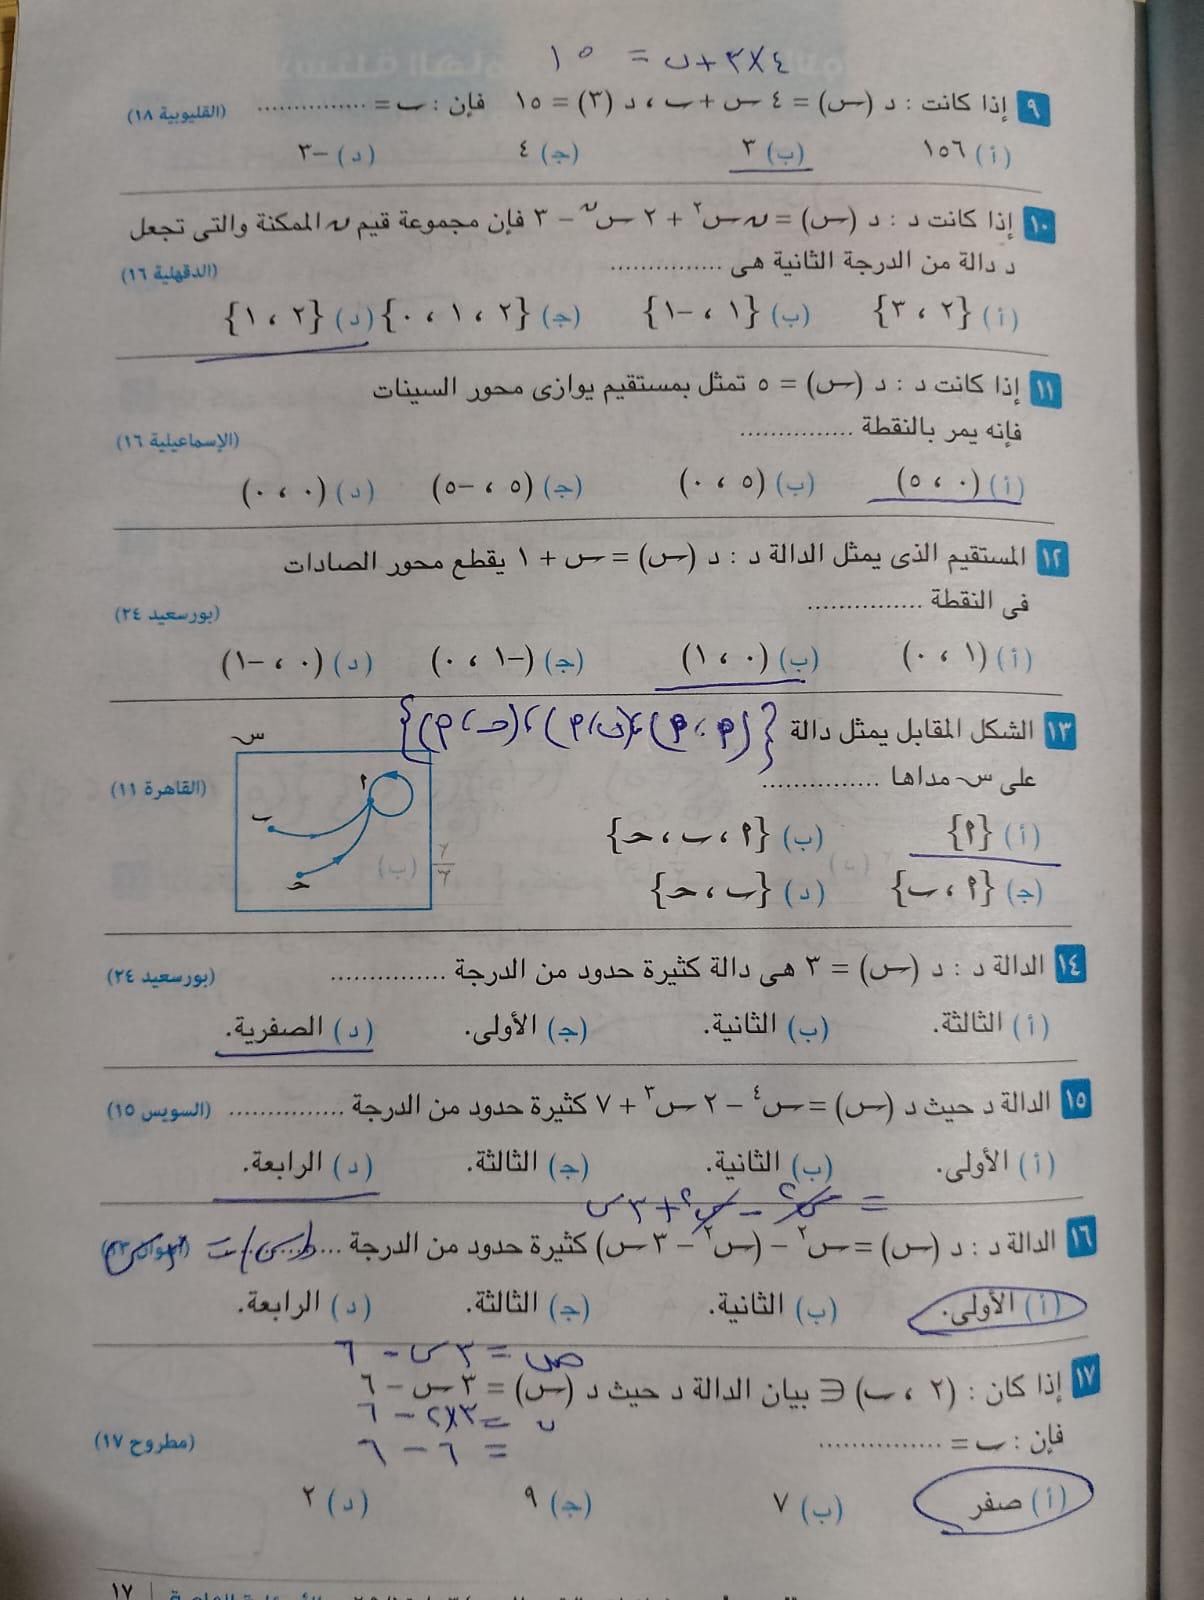 ٤×٣ + ب = ١٥
٩ إذا كانت : د (س) = ٤ س + ب ، د (٣) = ١٥ فإن : ب = ............... (القليوبية ١٨)
(أ) ١٥٦ (ب) ٣ (ج) ٤ (د) -٣
١٠ إذا كانت د : د (س) = ن س٢ + ٢ س^ن - ٣ فإن مجموعة قيم ن الممكنة والتى تجعل
د دالة من الدرجة الثانية هى ............... (الدقهلية ١٦)
(أ) {٢ ، ٣} (ب) {١ ، -١} (ج) {٢ ، ١ ، ٠} (د) {٢ ، ١}
١١ إذا كانت د : د (س) = ٥ تمثل بمستقيم يوازى محور السينات
فإنه يمر بالنقطة ............... (الإسماعيلية ١٦)
(أ) (٠ ، ٥) (ب) (٥ ، ٠) (ج) (٥ ، -٥) (د) (٠ ، ٠)
١٢ المستقيم الذى يمثل الدالة د : د (س) = س + ١ يقطع محور الصادات
فى النقطة ............... (بورسعيد ٢٤)
(أ) (١ ، ٠) (ب) (٠ ، ١) (ج) (-١ ، ٠) (د) (٠ ، -١)
١٣ الشكل المقابل يمثل دالة {(م ، م) ، (ب ، م) ، (ح ، م)}
س
على س مداها ............... (القاهرة ١١)
م
ب
ح
(أ) {م} (ب) {م ، ب ، ح}
(ج) {م ، ب} (د) {ب ، ح}
١٤ الدالة د : د (س) = ٣ هى دالة كثيرة حدود من الدرجة ............... (بورسعيد ٢٤)
(أ) الثالثة. (ب) الثانية. (ج) الأولى. (د) الصفرية.
١٥ الدالة د حيث د (س) = س٤ - ٢ س٣ + ٧ كثيرة حدود من الدرجة ............... (السويس ١٥)
(أ) الأولى. (ب) الثانية. (ج) الثالثة. (د) الرابعة.
= س٢ - س٢ + ٣ س
١٦ الدالة د : د (س) = س٢ - (س٢ - ٣ س) كثيرة حدود من الدرجة ...............
(أ) الأولى. (ب) الثانية. (ج) الثالثة. (د) الرابعة.
ص = ٣ س - ٦
١٧ إذا كان : (٢ ، ب) ∈ بيان الدالة د حيث د (س) = ٣ س - ٦
ب = ٣×٢ - ٦
فإن : ب = ............... (مطروح ١٧)
= ٦ - ٦
(أ) صفر (ب) ٧ (ج) ٩ (د) ٢
١٧